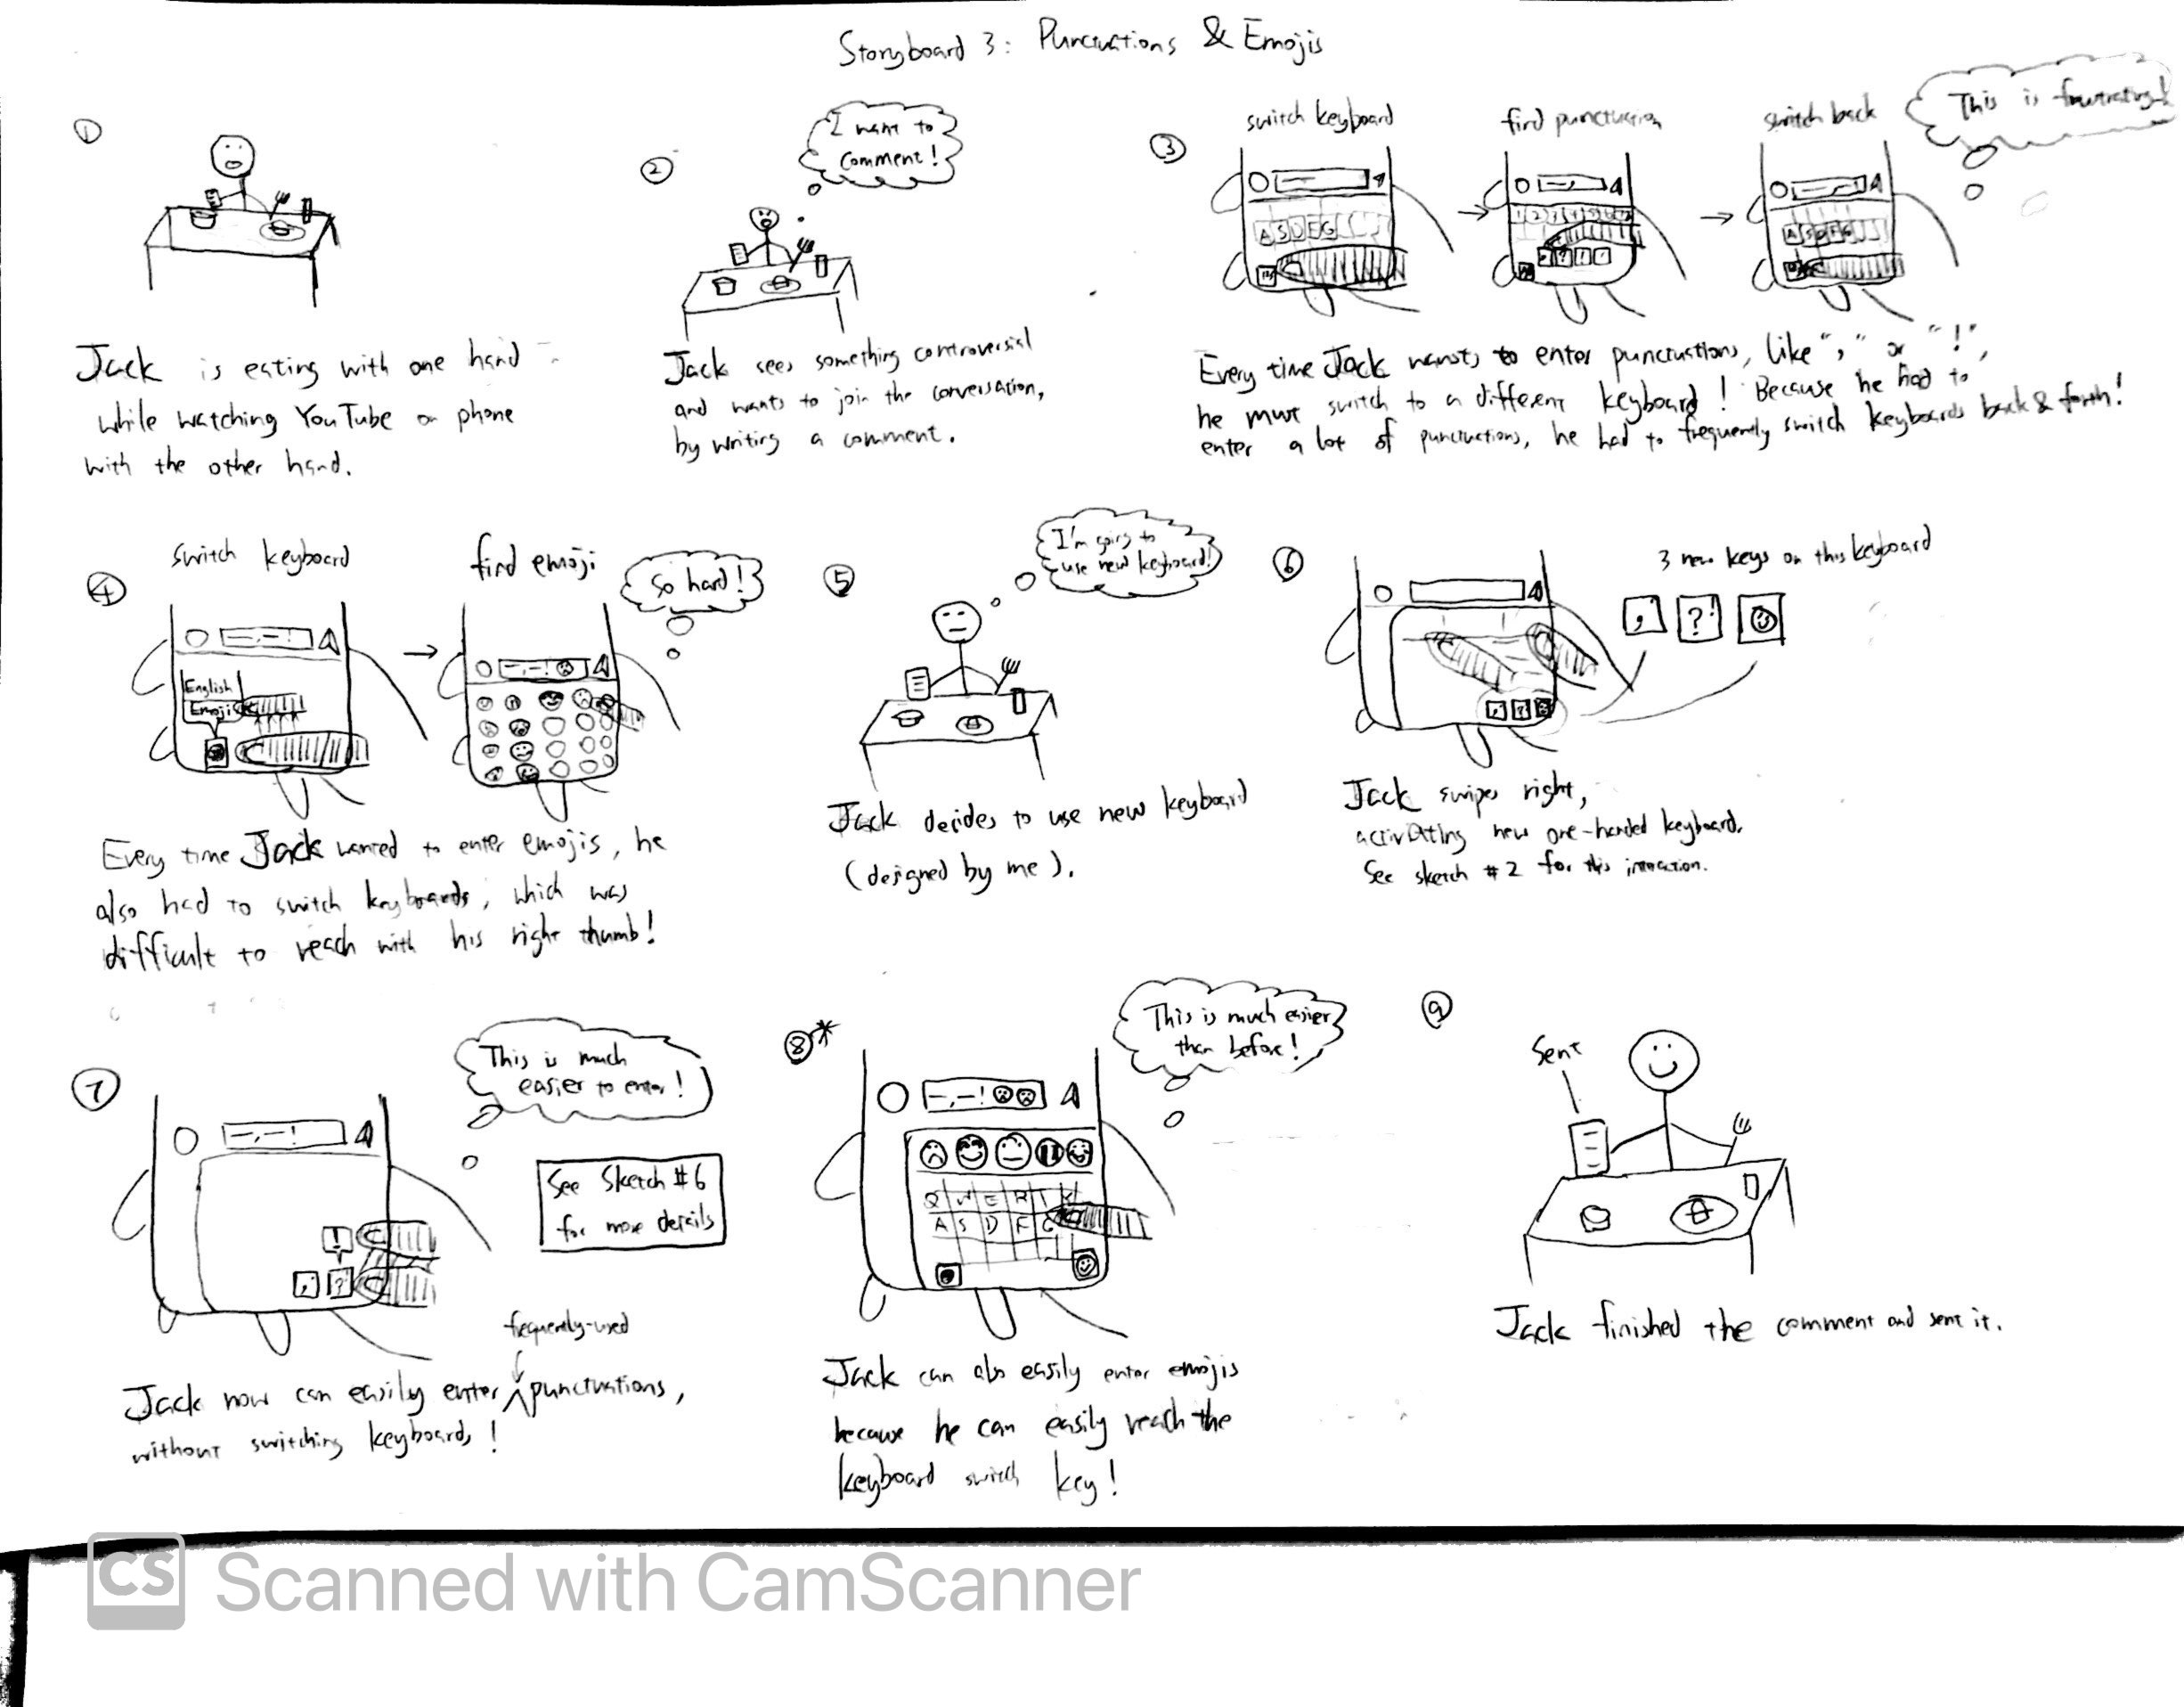 Storyboard 3: Punctuations & Emojis
1
Jack is eating with one hand
while watching YouTube on phone
with the other hand.
2
I want to
comment!
Jack sees something controversial
and wants to join the conversation,
by writing a comment.
3
switch keyboard
find punctuation
switch back
This is frustrating!
A S D F G
1 2 3 4 5
A S D F G
Every time Jack wants to enter punctuations, like "," or "!",
he must switch to a different keyboard! Because he had to
enter a lot of punctuations, he had to frequently switch keyboards back & forth!
4
switch keyboard
find emoji
So hard!
English
Emoji
Every time Jack wanted to enter emojis, he
also had to switch keyboards, which was
difficult to reach with his right thumb!
5
I'm going to
use new keyboard!
Jack decides to use new keyboard
(designed by me).
6
3 new keys on this keyboard
, ?!
Jack swipes right,
activating new one-handed keyboard.
See sketch #2 for this interaction.
7
This is much
easier to enter!
See Sketch #6
for more details
!
, ?
frequently-used
Jack now can easily enter punctuations,
without switching keyboards!
8*
This is much easier
than before!
Q W E R T
A S D F G
Jack can also easily enter emojis
because he can easily reach the
keyboard switch key!
9
Sent
Jack finished the comment and sent it.
CS Scanned with CamScanner